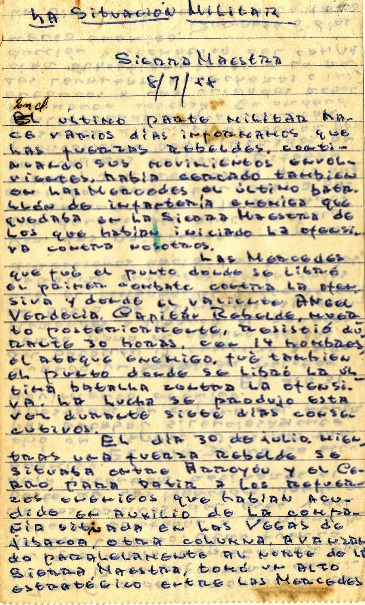 LA SITUACIÓN MILITAR
SIERRA MAESTRA
8/7/58
En el
El último parte militar ha-
ce varios días informamos que
las fuerzas rebeldes, conti-
nuando sus movimientos envol-
ventes, había cercado también
en Las Mercedes el último bata-
llón de infantería enemiga que
quedaba en la Sierra Maestra de
los que habían iniciado la ofensi-
va contra nosotros.
Las Mercedes
que fué el punto donde se libró
el primer combate contra la ofen-
siva y donde el valiente Angel
Verdecia, Capitán Rebelde, muer-
to posteriormente, resistió du-
rante 30 horas, con 14 hombres,
el ataque enemigo, fué también
el punto donde se libró la úl-
tima batalla contra la ofensi-
va. La lucha se produjo esta
vez durante siete días conse-
cutivos.
El día 30 de julio, mien-
tras una fuerza rebelde se
situaba entre Arroyón y el Ce-
rro, para batir a los refuer-
zos enemigos que habían acu-
dido en auxilio de la compa-
ñía sitiada en Las Vegas de
Jibacoa, otra columna, avanzan-
do paralelamente al norte de la
Sierra Maestra, tomó un alto
estratégico entre Las Mercedes